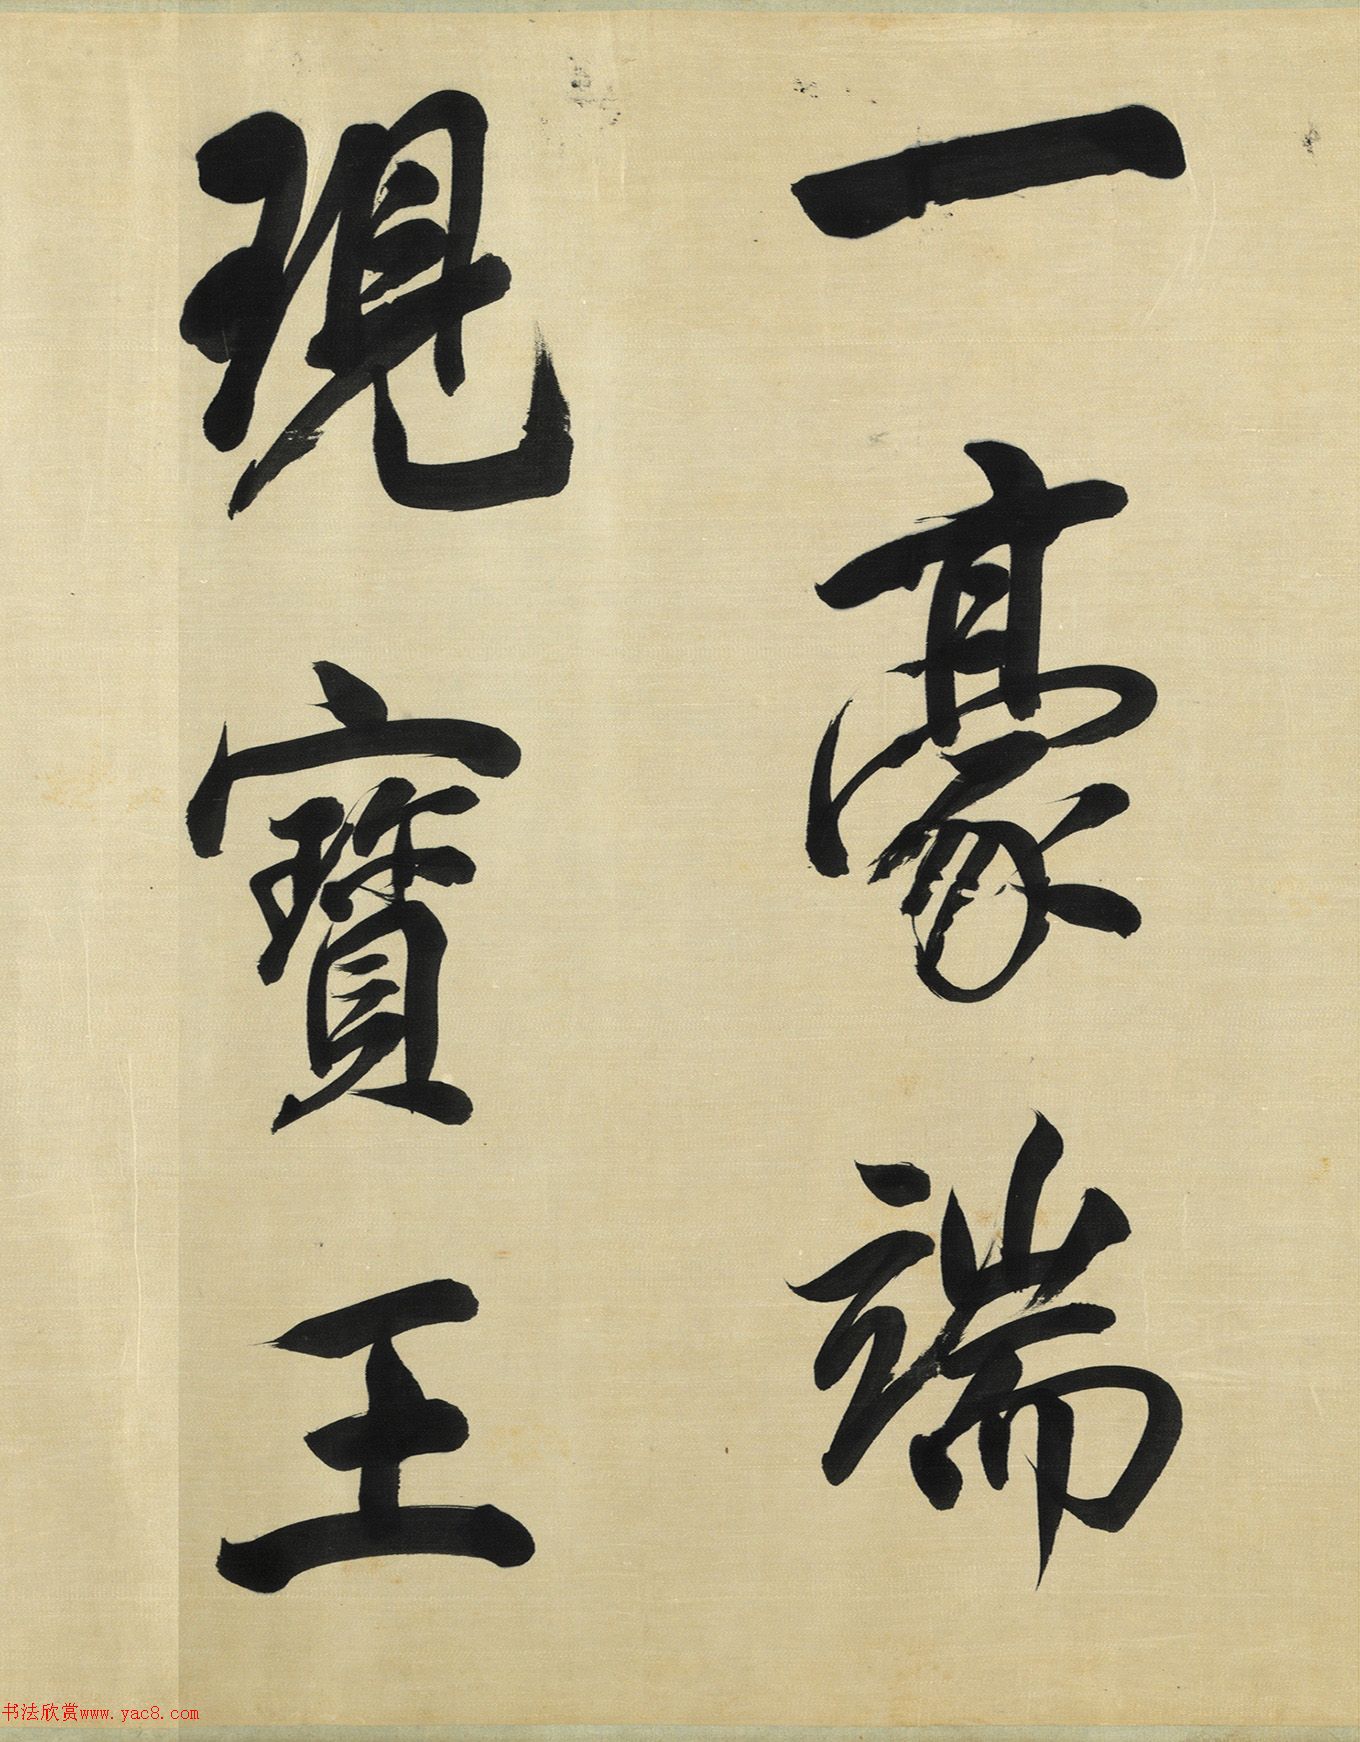 一豪端
現寶王
书法欣赏www.yac8.com